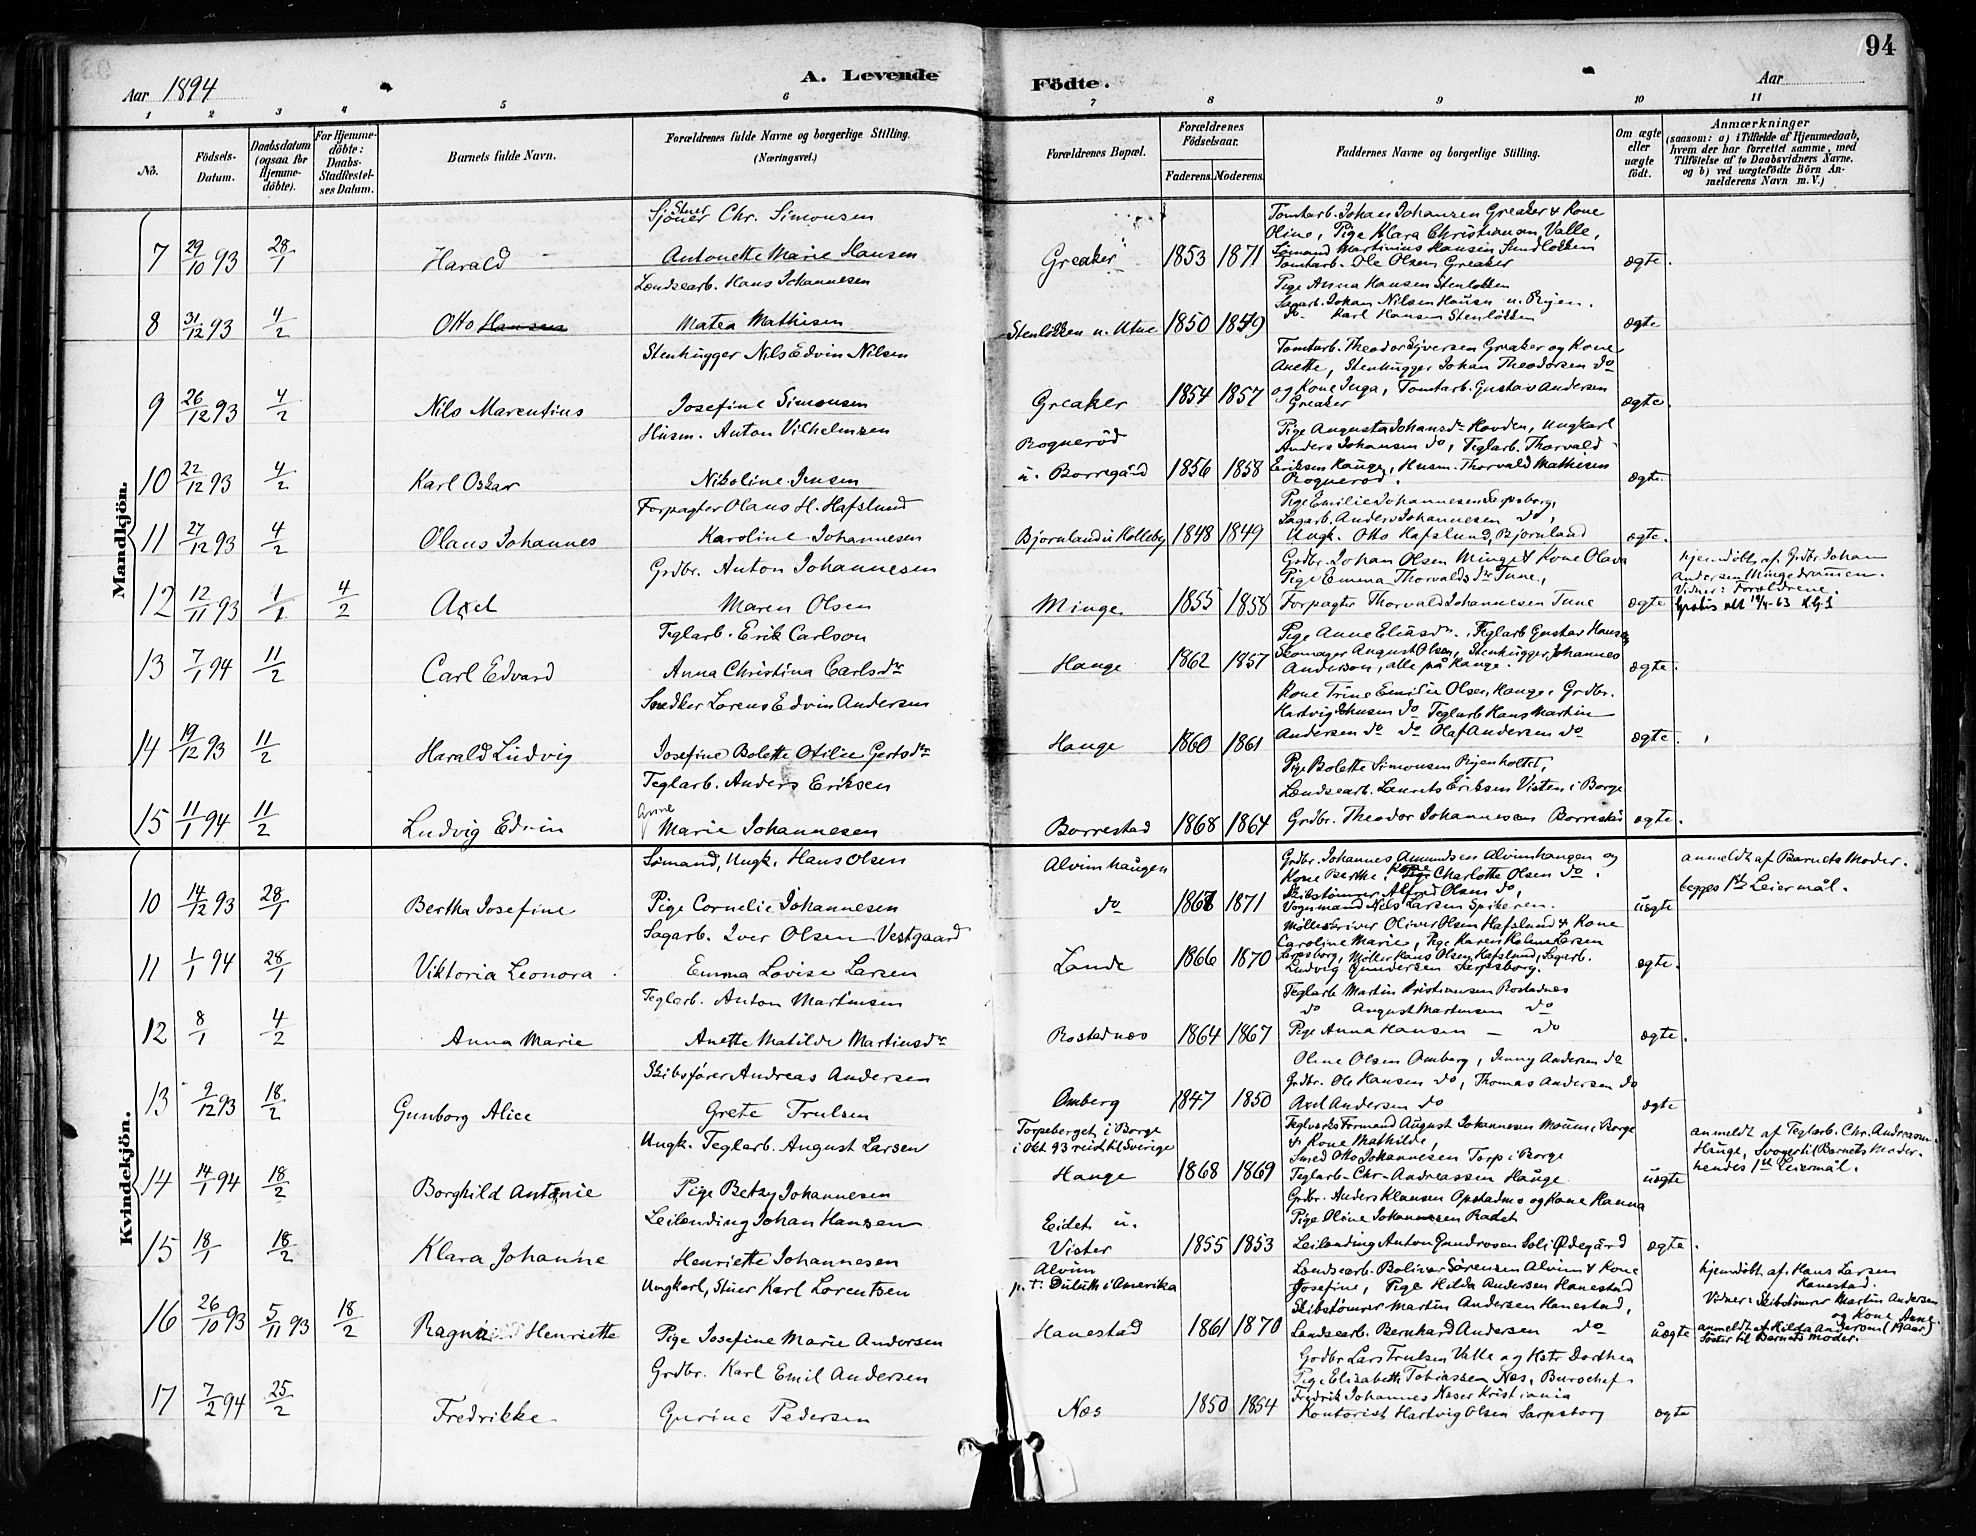 94
Aar 1894
A. Levende
Födte.
Aar
1 2 3 4 5 6 7 8 9 10 11
No.
Födsels-Datum.
Daabsdatum (ogsaa for Hjemme-döbte).
For Hjemme-döbte: Daabs-Stadfæstel-ses Datum.
Barnets fulde Navn.
Forældrenes fulde Navne og borgerlige Stilling. (Næringsvei.)
Forældrenes Bopæl.
Forældrenes Födselsaar.
Faderens. Moderens.
Faddernes Navne og borgerlige Stilling.
Om ægte eller uægte födt.
Anmærkninger
(saasom: a) i Tilfælde af Hjemmedaab, hvem der har forrettet samme, med Tilföielse af to Daabsvidners Navne, og b) ved uægtefödte Börn An-melderens Navn m. V.)
Mandkjön.
7 29/10 93 28/1 Harald
Stuer
Sjöner Chr. Simonsen
Antonette Marie Hansen
Greaker 1853 1871
Tomtarb. Johan Johansen Greaker & Kone
Oline, Pige Klara Christiansen, Valle,
Sömand Martinius Hansen Sundløkken
Tomtarb. Ole Olsen Greaker
ægte.
8 31/12 93 4/2 Otto Hansen
Lændsearb. Hans Johannesen
Matea Mathisen
Stenløkken u. Utne 1850 1849
Pige Anna Hansen Stenløkken
Sagarb. Johan Nilsen Hausen u. Ryen.
do Karl Hansen Stenløkken
ægte
9 26/12 93 4/2 Nils Marentius
Stenhugger Nils Edvin Nilsen
Josefine Simonsen
Greaker 1854 1857
Tomtarb. Theodor Syversen Greaker og Kone
Anette, Stenhugger Johan Theodorsen do
og Kone Inga, Tomtarb. Gustav Andersen
Greaker
ægte.
10 22/12 93 4/2 Karl Oskar
Husm. Anton Vilhelmsen
Nikoline Jensen
Roquerød
u. Borregård 1856 1858
Pige Augusta Johansdr Hovden, Ungkarl
Anders Johansen do, Teglarb. Thorvald
Eriksen Hauge, Husm. Thorvald Mathisen
Roquerød.
ægte.
11 27/12 93 4/2 Olaus Johannes
Forpagter Olaus H. Hafslund
Karoline Johannesen
Bjørnland u Kolleby 1848 1849
Pige Emilie Johannesen Sarpsborg,
Sagarb. Anders Johannesen do,
Ungk. Otto Hafslund, Bjørnland
ægte.
12 12/11 93 1/1 4/2 Axel
Grdbr. Anton Johannesen
Maren Olsen
Minge 1855 1858
Grdbr. Johan Olsen Minge & Kone Olava
Pige Emma Thorvaldsdr Tune,
Forpagter Thorvald Johannesen Tune
ægte
hjemdöbt af Grdbr Johan
Andersen Mingedramen.
Vidner: Forældrene.
13 7/1 94 11/2 Carl Edvard
Teglarb. Erik Carlson
Anna Christina Carlsdr
Hauge 1862 1857
Pige Anne Eliasdr. Teglarb Gustav Hansen
Skomager August Olsen, Stenhugger Johannes
Anderson, alle på Hauge.
ægte
14 19/12 93 11/2 Harald Ludvig
Snedker Lorens Edvin Andersen
Josefine Bolette Otilie Gertsdr
Hauge 1860 1861
Kone Trine Emilie Olsen, Hauge, Grdbr.
Hartvig Jensen do Teglarb Hans Martin
Andersen do do Olaf Andersen do
ægte.
15 11/1 94 11/2 Ludvig Edvin
Teglarb. Anders Eriksen
Marie Johannesen
Borrestad 1868 1864
Pige Bolette Simonsen Ryenholtet,
Lændsearb. Laurits Eriksen Visten i Borge
Grdbr. Theodor Johannesen Borrestad
ægte.
Kvindekjön.
10 14/12 93 28/1 Bertha Josefine
Sömand, Ungk. Hans Olsen
Pige Cornelie Johannesen
Alvimhaugen
do 1867 1871
Grdbr. Johannes Amundsen Alvimhaugen og
Kone Berthe, Kone Charlotte Olsen do.
Skibstømrer Alfred Olsen do,
Vognmand Nils Larsen Spikeren.
uægte
anmeldt af Barnets Moder.
begges 1ste Leiermål.
11 1/1 94 28/1 Viktoria Leonora
Sagarb. Iver Olsen Vestgaard
Emma Lovise Larsen
Lande 1866 1870
Mölleskriver Oliver Olsen Hafslund & Kone
Caroline Marie, Pige Karen Helene Larsen
Sarpsborg, Möller Hans Olsen Hafslund, Sagarb.
Ludvig Gundersen Sarpsborg.
ægte.
12 8/1 4/2 Anna Marie
Teglarb. Anton Martinsen
Anette Matilde Martinsdr
Rostadnæs 1864 1867
Teglarb Martin Kristiansen Rostadnes
do August Martinsen do
Pige Anna Hansen — do
ægte.
13 9/12 93 18/2 Gunborg Alice
Skibsfører Andreas Andersen
Grete Trulsen
Omberg 1847 1850
Oline Olsen Omberg, Jenny Andersen do
Grdbr. Ole Hansen do, Thomas Andersen do
Axel Andersen do
ægte
14 14/1 94 18/2 Borghild Antonie
Ungk. Teglarb. August Larsen
Pige Betzy Johannesen
Torpeberget i Borge
i Okt 93 reist til Sverige
Hauge 1868 1869
Teglverks Formand August Johannesen Moum i Borge
& Kone Mathilde,
Smed Otto Johannesen Torp i Borge
Teglarb. Chr. Andreassen Hauge
uægte
anmeldt af Teglarb. Chr. Andreassen
Hauge, Svoger til Barnets Moder.
hendes 1ste Leiermål.
15 18/1 18/2 Klara Johanne
Leilending Johan Hansen
Henriette Johannesen
Eidet u.
Vister 1855 1853
Grdbr. Anders Klausen Opstadmo og Kone Hanna
Pige Oline Johannesen Radet
Leilending Anton Gundrosen Soli Ødegård
ægte.
16 26/10 93 5/11 93 18/2 Ragna Henriette
Ungkarl, Stuer Karl Lorentsen
Pige Josefine Marie Andersen
Alvim
p. t. Duluth i Amerika
Hanestad 1861 1870
Lændsearb. Bolivar Sørensen Alvim & Kone
Josefine, Pige Hilda Andersen Hanestad
Skibstømrer Martin Andersen Hanestad,
Landsearb. Bernhard Andersen do
uægte
hjemdöbt af Hans Larsen
Hanestad.
Vidner: Skibstömrer Martin Andersen
og Kone Anne
anmeldt af Hilda Andersen (19 Aar)
Søster til Barnets Moder.
17 7/2 94 25/2 Fredrikke
Grdbr. Karl Emil Andersen
Gurine Pedersen
Næs 1850 1854
Grdbr Lars Trulsen Valle og Hstr Dorthea
Pige Elisabeth Tobiassen Næs, Burochef
Fredrik Johannes Næser Kristiania
Kontorist Hartvig Olsen Sarpsborg
ægte